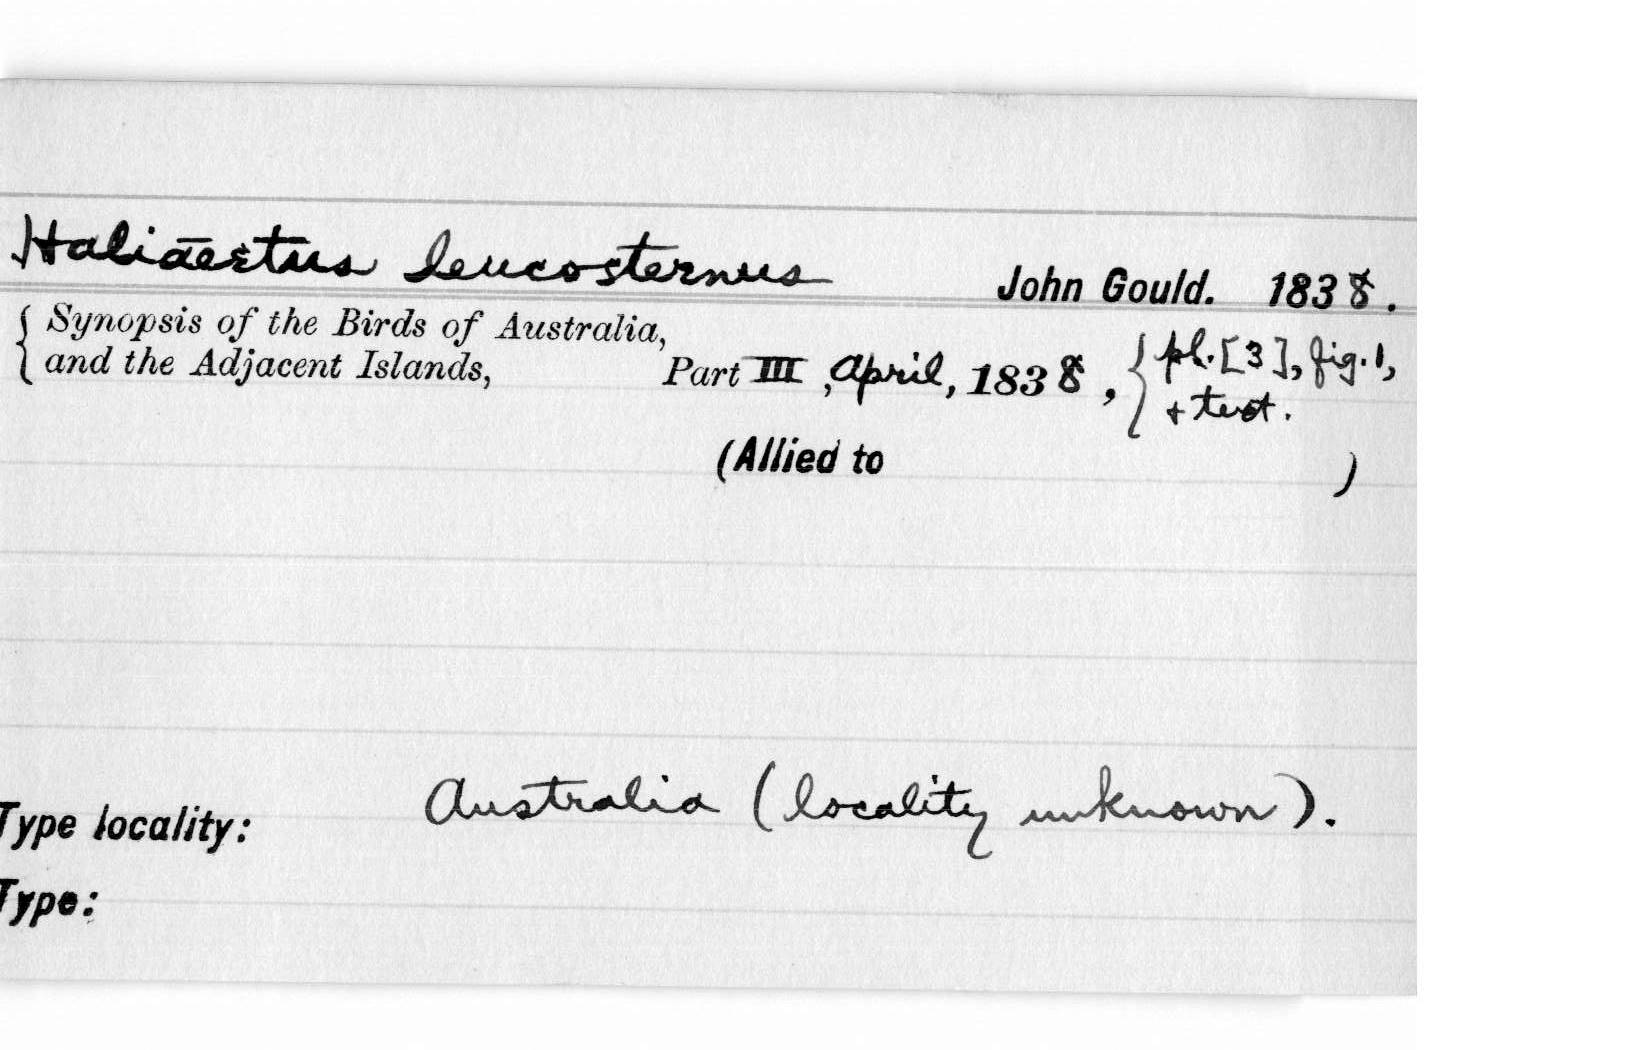 Haliaeetus leucosternus John Gould. 1838.
Synopsis of the Birds of Australia,
and the Adjacent Islands, Part III, April, 1838, pl. [3], fig. 1,
+ text.
(Allied to )
Type locality: Australia (locality unknown).
Type: